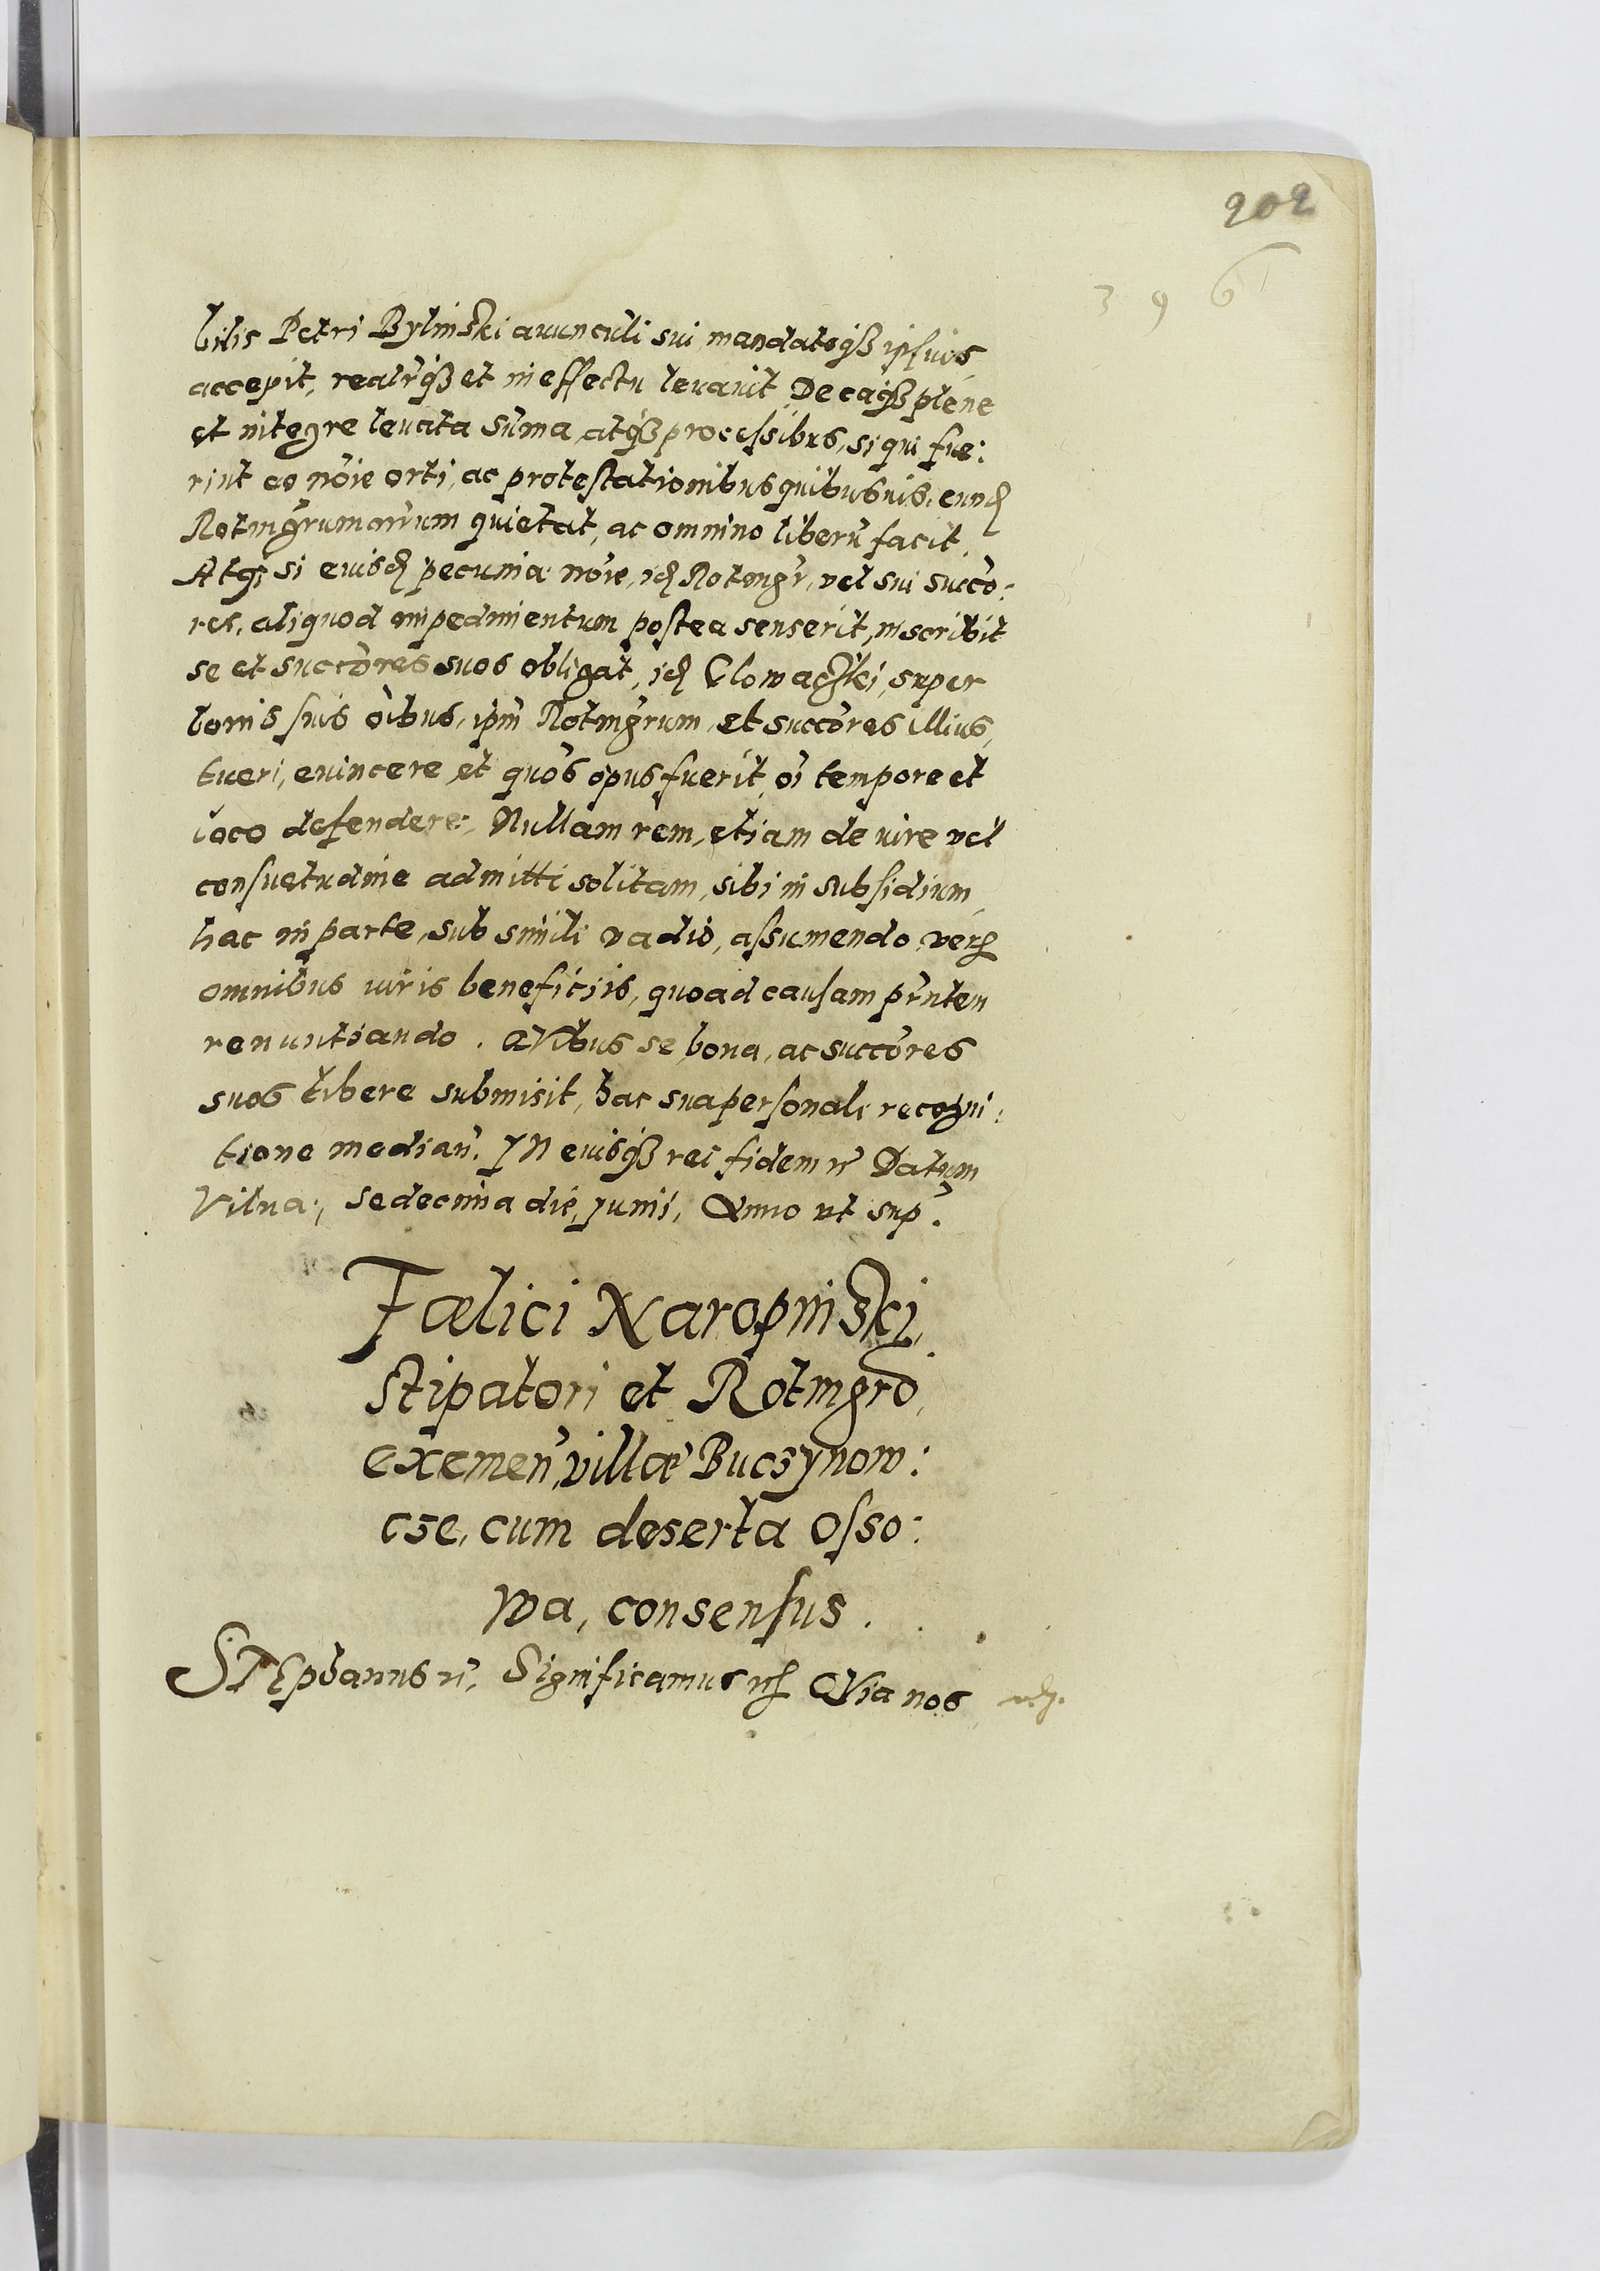 202
396
bilis Petri Bylinski auunculi sui mandatoqꝫ ipsius
accepit, realrqꝫ et in effectu leuauit. De eaqꝫ plene
et integre leuata sūma, atqꝫ processibus, si qui fue:
rint eo noie orti, ac protestationibus quibusuis, eund
Rotmgrum quietat, ac omnino liberū facit.
Atqꝫ si euisd pecuniæ noie, id Rotmgr, vel sui succo:
res, aliquod impedimentum postea senserit, inscribit
se et succores suos obligat, id Clowacski, super
bonis suis oibus, ipm Rotmgrum, et succores illius,
tueri, euincere et quos opus fuerit, oi tempore et
loco defendere: Nullam rem, etiam de iure vel
consuetudine admitti solitam, sibi in subsidium
hac in parte, sub simili vadio, assumendo, verū
omnibus iuris beneficiis, quoad causam prntem
renuntiando. QVibus se, bona, ac succores
suos libere submisit, hac sua personali recogni:
tione median. IN euisqꝫ rei fidem rc Datum
Vilnæ, sedecima die, Junii, Anno ut sup.
Fælici Naropinski,
stipatori et Rotmgro,
exemen, villæ Bucsynow:
cse, cum deserta Osso:
wa, consensus.
STEphanus rc, Significamus rc QVia nos